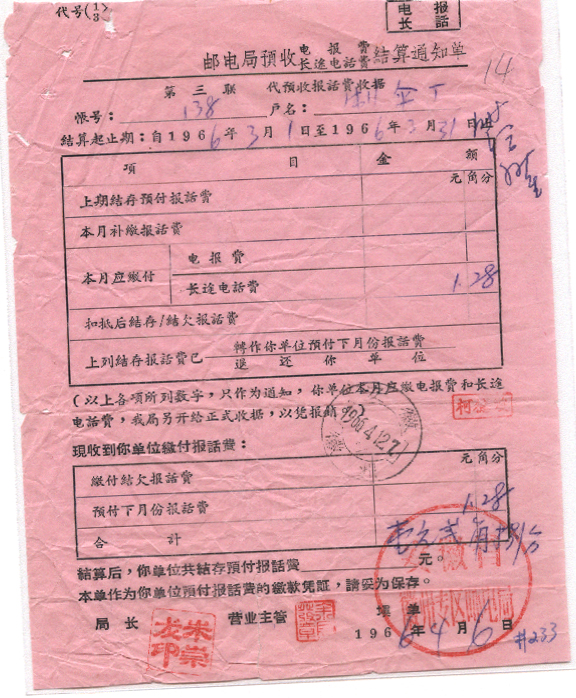 代号(1/3)
电 报
长 話
邮电局预收电报費长途电話費结算通知单
14
第三联 代预收报話費收据
帳号: 138 户名:
结算起止期:自1966年3月1日至1966年3月31日止
項 目 金 額
元角分
上期結存預付报話費
本月补缴报話費
本月应缴付 电报費
长途电話費 1.28
扣抵后結存/結欠报話費
上列結存报話費已 轉作你单位預付下月份报話費
退还你单位
(以上各項所列数字,只作为通知,你单位本月应缴电报費和长途
电話費,我局另开给正式收据,以凭报銷
1966.4.12.
現收到你单位缴付报話費:
元角分
缴付結欠报話費
預付下月份报話費 1.28
合 計 壹元贰角捌分
結算后,你单位共結存預付报話費 元。
本单作为你单位預付报話費的缴款凭証,請妥为保存。
局长 营业主管 填单
1966年4月6日
#233